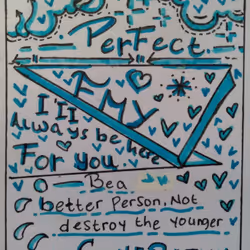 Perfect
FMY
I'II
Always be here
For you
Bea
better Person, Not
destroy the younger